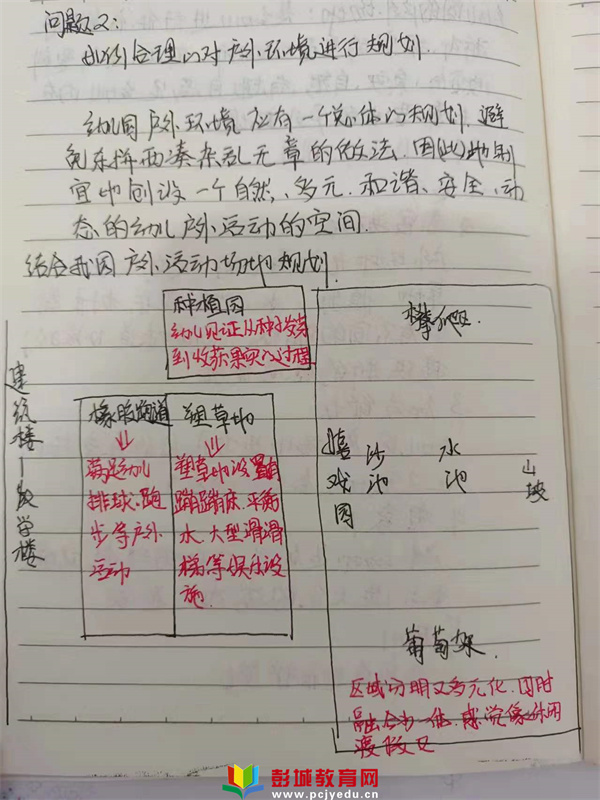 问题2:
如何合理的对户外环境进行规划.
幼儿园户外环境应有一个总体的规划,避
免东拼西凑杂乱无章的做法.因此地制
宜地创设一个自然、多元、和谐、安全、动
态的幼儿户外运动的空间.
结合我园户外运动场地规划.
种植园
幼儿见证从种子发芽
到收获果实的过程
攀爬区
建筑楼—教学楼
橡胶跑道
塑草地
满足幼儿
排球、跑
步等户外
运动
塑草地设置有
蹦蹦床、平衡
木、大型滑滑
梯等娱乐设
施.
嬉戏园
沙池
水池
山坡
葡萄架
区域分明又多元化,同时
融合为一体,感觉像休闲
度假区
彭城教育网
www.pcjyedu.cn